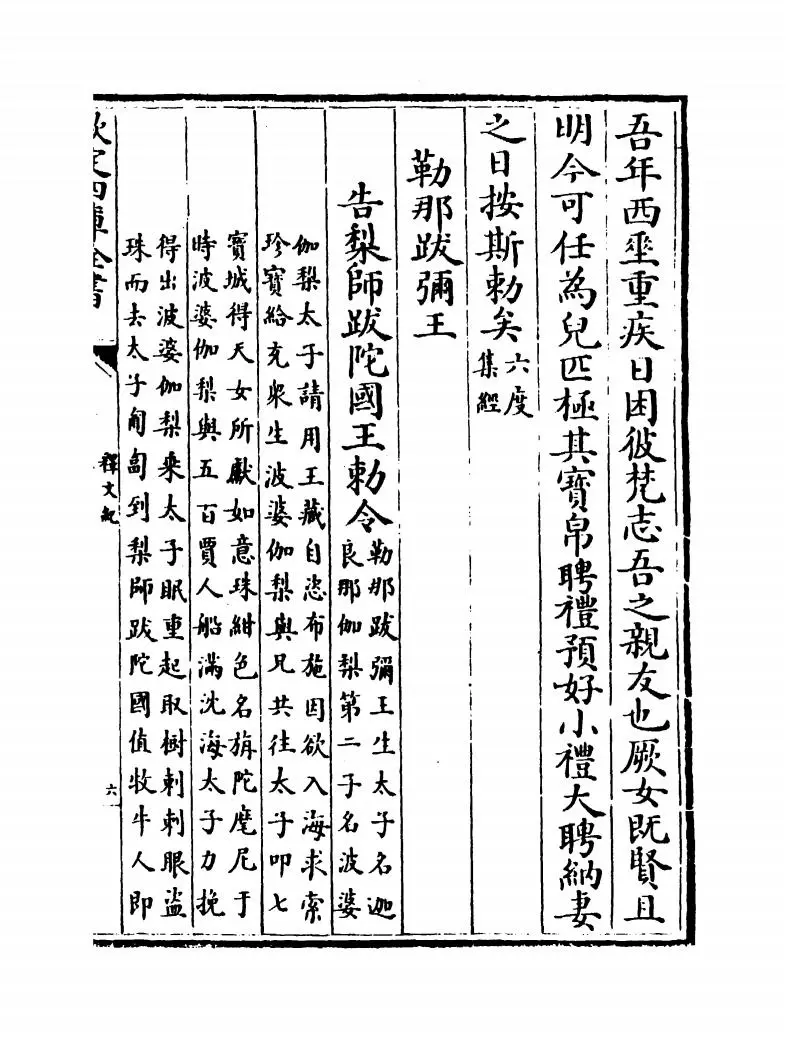 吾年西垂重疾日困彼梵志吾之親友也厥女既賢且
明今可任為兒匹極其寶帛聘禮預好小禮大聘納妻
之日按斯勅矣六度
集經
勒那跋彌王
告梨師跋陀國王勅令勒那跋彌王生太子名迦
良那伽梨第二子名波婆
伽梨太子請用王藏自恣布施因欲入海求索
珍寶給充衆生波婆伽梨與兄共往太子叩七
寳城得天女所獻如意珠紺色名旃陀麾尼于
時波婆伽梨與五百賈人船滿沈海太子力挽
得出波婆伽梨乘太子眠重起取樹刺刺眼盜
珠而去太子匍匐到梨師跋陀國值牧牛人即
欽定四庫全書
釋文紀
六